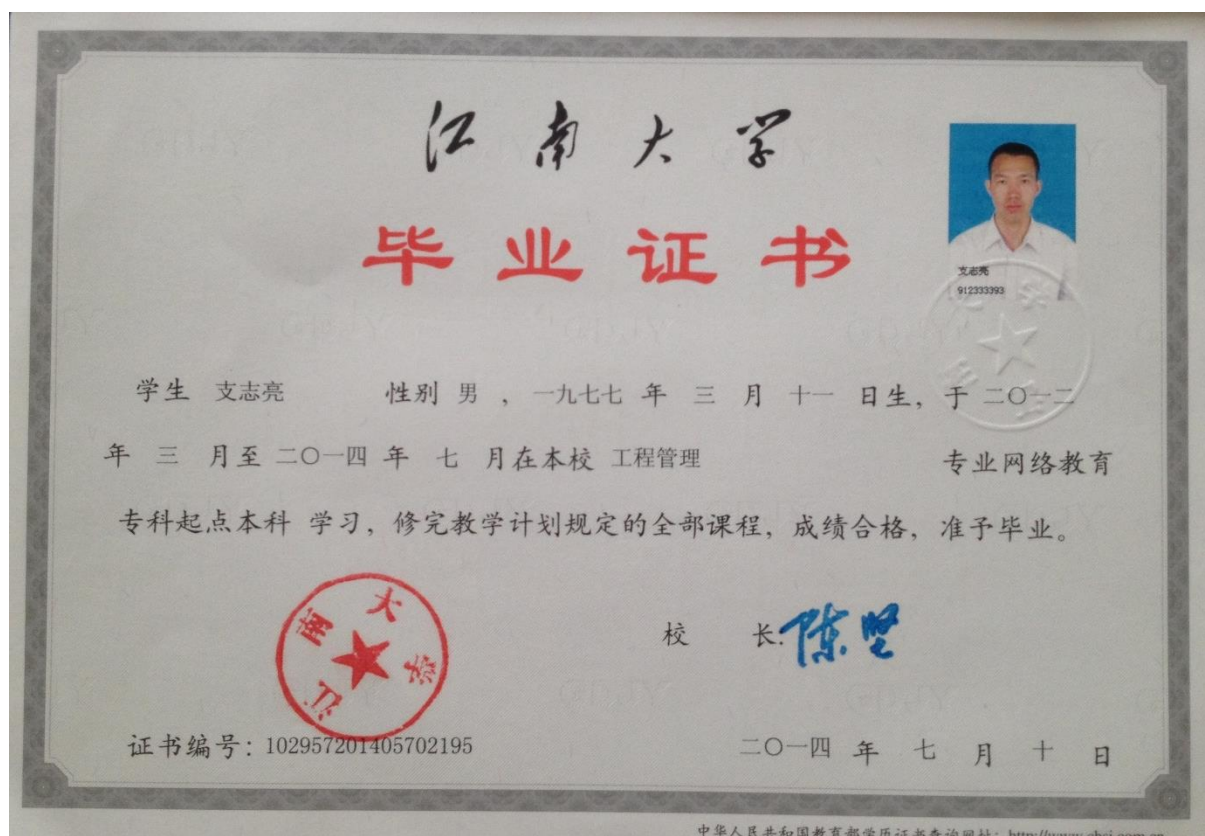 江南大学
毕业证书
支志亮
912333393
学生 支志亮 性别 男 ，一九七七 年 三 月 十一 日生，于 二〇一二
年 三 月至 二〇一四 年 七 月在本校 工程管理 专业网络教育
专科起点本科 学习，修完教学计划规定的全部课程，成绩合格，准予毕业。
江南大学
校 长：陈坚
证书编号：102957201405702195
二〇一四 年 七 月 十 日
中华人民共和国教育部学历证书查询网址：http://www.chsi.com.cn